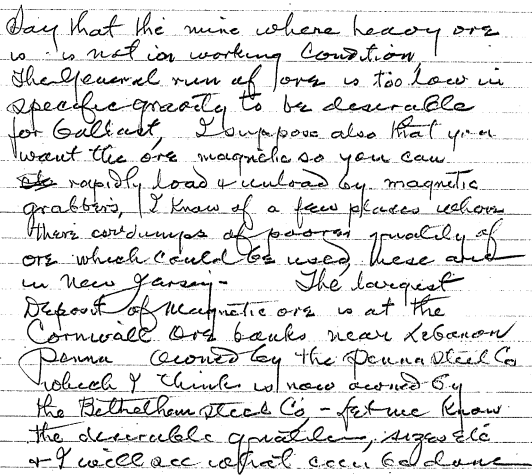 Say that the mine where heavy ore
is - is not in working Condition,
The General run of ore is too low in
specific gravity to be desirable
for ballast, I suppose also that you
want the ore magnetic so you can
rapidly load & unload by magnetic
grabbers, I know of a few places where
there are dumps of poorer quality of
ore which could be used, these are
in New Jersey - The largest
Deposit of Magnetic ore is at the
Cornwall Ore banks near Lebanon
Penna owned by the Penna Steel Co
which I think is now owned by
the Bethelhem Steel Co, - let me know
the desirable qualities, sizes etc
& I will see what can be done